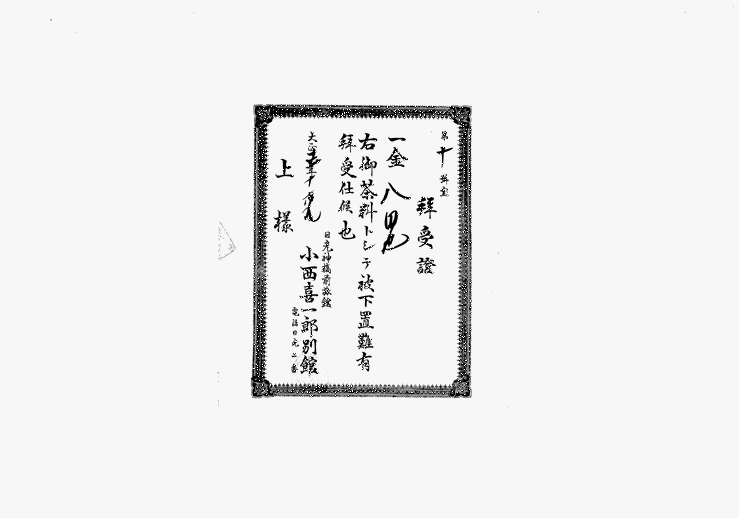 第十號室
拜受證
一金八円也
右御茶料トシテ被下置難有
拜受仕候也
大正
日光神橋前旅館
小西喜一郎別館
電話日光二番
上様